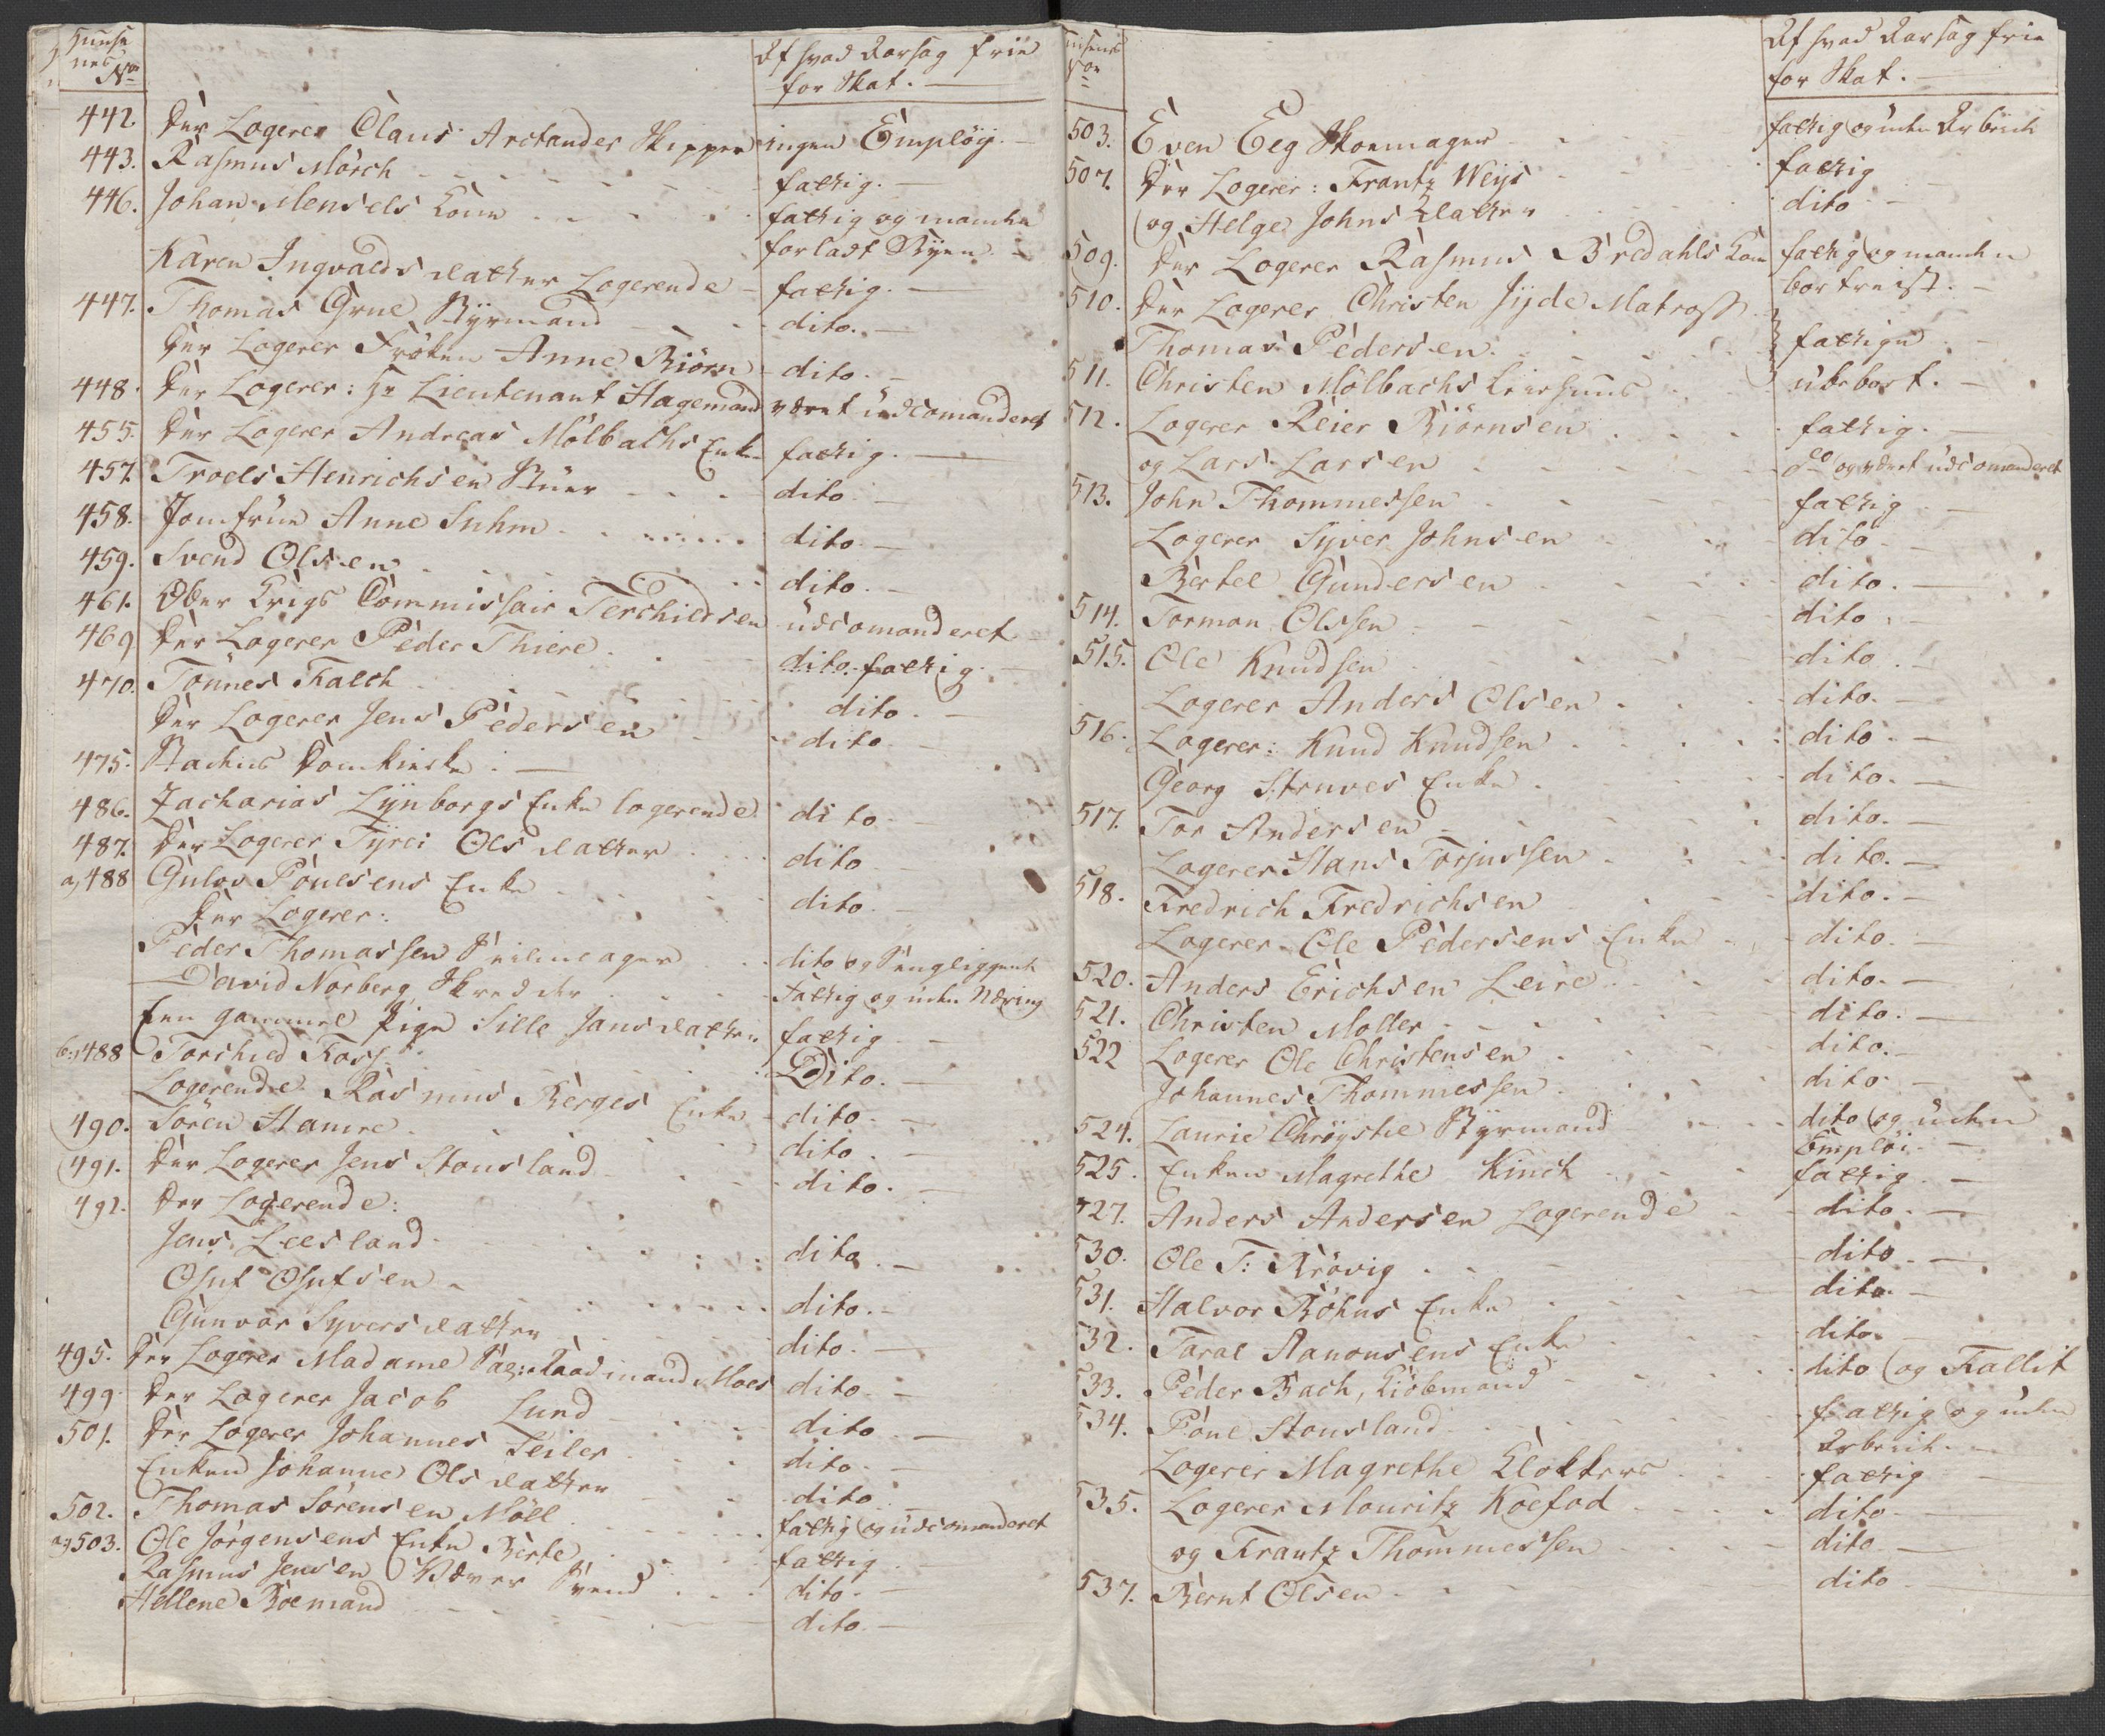 Huuse
nes
No
Af hvad Aarsag frie
for Skat. —
442. Der Logerer Claus Arctander Skipper ingen Emplöy. —
443. Rasmus Mörch fattig. —
446. Johan Mensels Kone fattig og manden
forladt Byen —
Karen Ingvalds datter Logerende fattig. —
447. Thomas Grue Styrmand dito. —
Der Logerer Fröken Anne Biörn dito —
448. Der Logerer: Hr Lieutenant Hagemand været udcomanderet
455. Der Logerer Andreas Mölbachs Enke fattig. —
457. Troels Henrichsen Buer dito —
458. Jomfrue Anne Suhm dito —
459. Svend Olsen dito. —
461. Ober Krigs Commissair Terchildsen udcomanderet
469 Der Logerer Peder Thiere dito. fattig. —
470. Tönnes Falch dito. —
Der Logerer Jens Pedersen dito —
475. Backus Domkirke. —
486. Zacharias Lynborgs Enke logerende dito —
487. Der Logerer Tyrei Ols datter dito —
a, 488 Gulov Pouelsens Enke dito
Der Logerer:
Peder Thomassen Seilmager dito og Sengliggende
David Norberg Skredder Fattig og uden Næring
Een gammel Pige Sille Jans datter fattig —
b, 488 Torchild Foss Dito. —
Logerende Rasmus Berges Enke dito —
490. Sören Hamre dito. —
491. Der Logerer Jens Stousland dito. —
492. Der Logerende:
Jens Leesland dito —
Oluf Olufsen dito. —
Gunvor Syvers datter dito. —
495. Der Logerer Madame Raadmand Moes dito —
499. Der Logerer Jacob Lund dito —
501. Der Logerer Johannes Seiler dito —
Enken Johanne Ols datter dito
502. Thomas Sörensen Möll fattig og udcomanderet
a, 503. Ole Jörgensens Enke Berte fattig —
Rasmus Jensen Væver Svend dito. —
Hellene Boemand dito. —
Husenes
No
Af hvad Aarsag frie
for Skat. —
503. Even Eeg Skoemager fattig og uden Arbeide
507. Der Logerer: Frantz Weys fattig
og Helge Johns datter dito —
509. Der Logerer Rasmus Bredahls Kone fattig og manden
bortreist. —
510. Der Logerer Christen Jyde Matross
Thomas Pedersen fattige —
511. Christen Mölbachs Leiehuus ubeboet. —
512. Logerer Reier Biörnsen fattig. —
og Lars Larsen do og været udcomanderet
513. John Thommessen fattig —
Logerer Syver Johnsen dito —
Bertel Gundersen dito. —
514. Torman Olssen dito —
515. Ole Knudsen dito. —
Logerer Anders Olsen dito. —
516. Logerer: Knud Knudsen dito. —
Georg Struves Enke dito. —
517. Tor Andersen dito. —
Logerer Hans Torjussen dito. —
518. Fredrich Fredrichsen dito. —
Logerer Ole Pedersens Enke dito. —
520. Anders Erichsen Leire dito. —
521. Christen Moller dito. —
522 Logerer Ole Christensen dito. —
Johannes Thommessen dito —
524. Laurie Chröystie Styrmand dito og uden
Emplöi —
525. Enken Magrethe Kinck fattig. —
527. Anders Andersen Logerende dito. —
530. Ole T: Brövig dito. —
531. Halvor Böhns Enke dito —
532. Taral Aanonsens Enke dito.
533. Peder Bach, Kiöbmand dito og Fallit
534. Poue Stousland fattig og uden
Arbeide. —
Logerer Magrethe Klokkers fattig —
535. Logerer Mouritz Koefod dito. —
og Frantz Thommessen dito —
537. Bernt Olsen dito —